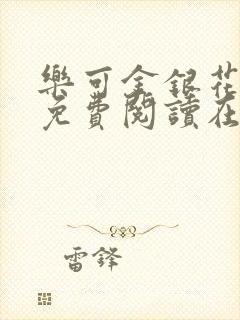 樂可金銀花
免費閱讀在
雷鋒